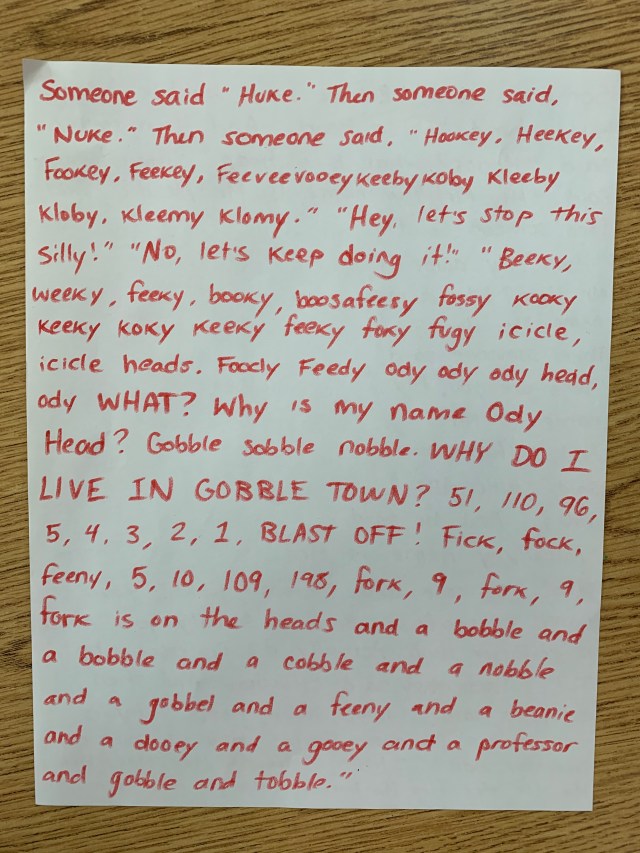 Someone said "Huke." Then someone said,
"Nuke." Then someone said, "Hookey, Heekey,
Fookey, Feekey, Feeveevooey keeby koby kleeby
kloby, kleemy klomy." "Hey, let's stop this
silly!" "No, let's keep doing it!" "Beeky,
weeky, feeky, booky, boosafeesy fossy kooky
keeky koky keeky feeky foky fugy icicle,
icicle heads. Foody Feedy ody ody ody head,
ody WHAT? Why is my name Ody
Head? Gobble sobble nobble. WHY DO I
LIVE IN GOBBLE TOWN? 51, 110, 96,
5, 4, 3, 2, 1, BLAST OFF! Fick, fock,
feeny, 5, 10, 109, 198, fork, 9, fork, 9,
fork is on the heads and a bobble and
a bobble and a cobble and a nobble
and a gobbel and a feeny and a beanie
and a dooey and a gooey and a professor
and gobble and tobble."